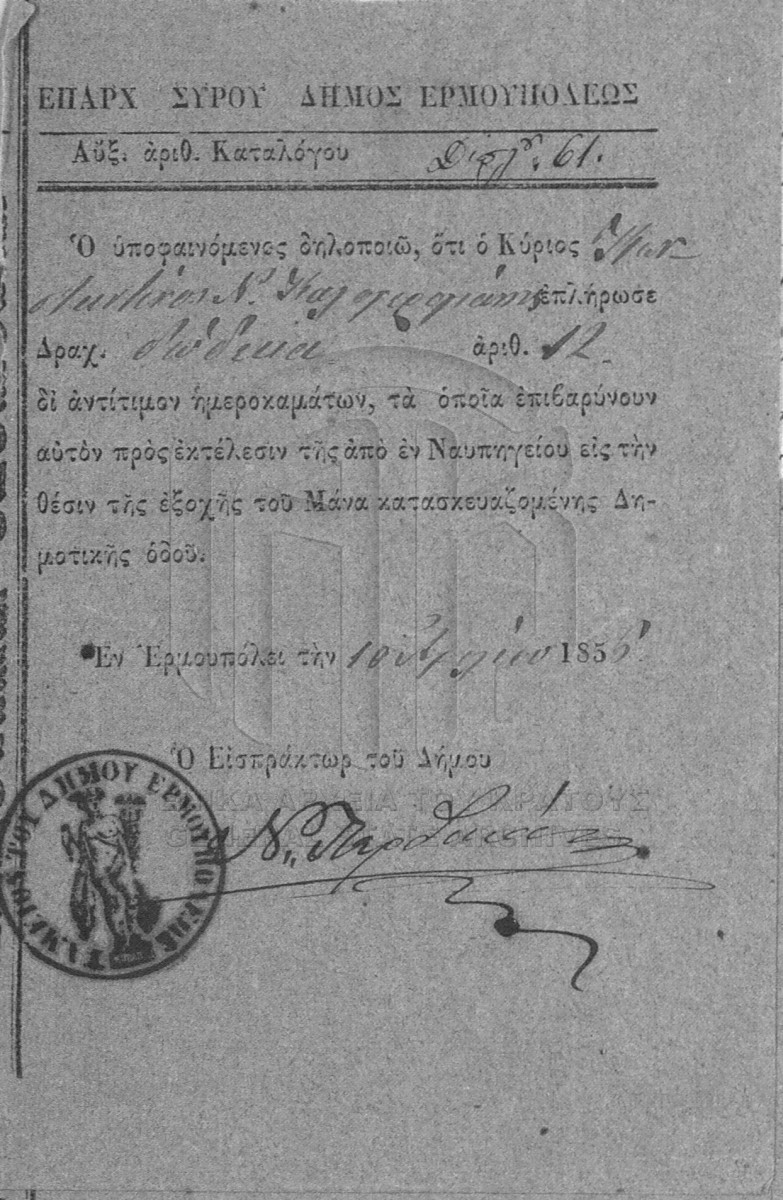 ΕΠΑΡΧ ΣΥΡΟΥ ΔΗΜΟΣ ΕΡΜΟΥΠΟΛΕΩΣ
Αὔξ. ἀριθ. Καταλόγου 61.
Ὁ ὑποφαινόμενος δηλοποιῶ, ὅτι ὁ Κύριος Κων-
σταντῖνος Ν. ἐπλήρωσε
Δραχ. δώδεκα ἀριθ. 12
δι ἀντίτιμον ἡμεροκαμάτων, τὰ ὁποῖα ἐπιβαρύνουν
αὐτὸν πρὸς ἐκτέλεσιν τῆς ἀπὸ ἐν Ναυπηγείου εἰς τὴν
θέσιν τῆς ἐξοχῆς τοῦ Μάνα κατασκευαζομένης Δη-
μοτικῆς ὁδοῦ.
Ἐν Ἑρμουπόλει τὴν 10 185
Ὁ Εἰσπράκτωρ τοῦ Δήμου
Ν.
ΤΑΜΕΙΟΝ ΤΟΥ ΔΗΜΟΥ ΕΡΜΟΥΠΟΛΕΩΣ
ΓΕΝΙΚΑ ΑΡΧΕΙΑ ΤΟΥ ΚΡΑΤΟΥΣ